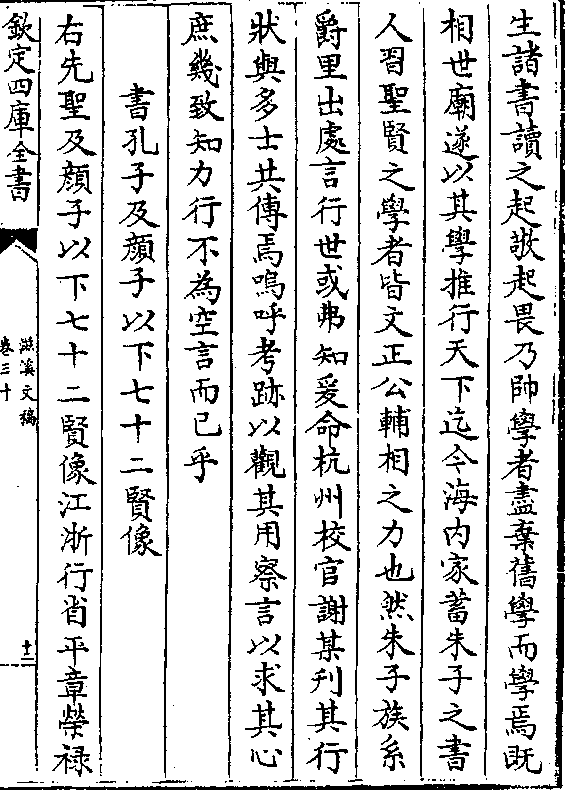 生諸書讀之起敬起畏乃帥學者盡棄舊學而學焉既
相世廟遂以其學推行天下迄今海内家蓄朱子之書
人習聖賢之學者皆文正公輔相之力也然朱子族系
爵里出處言行世或弗知爰命杭州校官謝某刋其行
狀與多士共傳焉嗚呼考跡以觀其用察言以求其心
庶幾致知力行不為空言而已乎
書孔子及顔子以下七十二賢像
右先聖及顔子以下七十二賢像江浙行省平章榮祿
欽定四庫全書
滋溪文稿
卷三十
十二